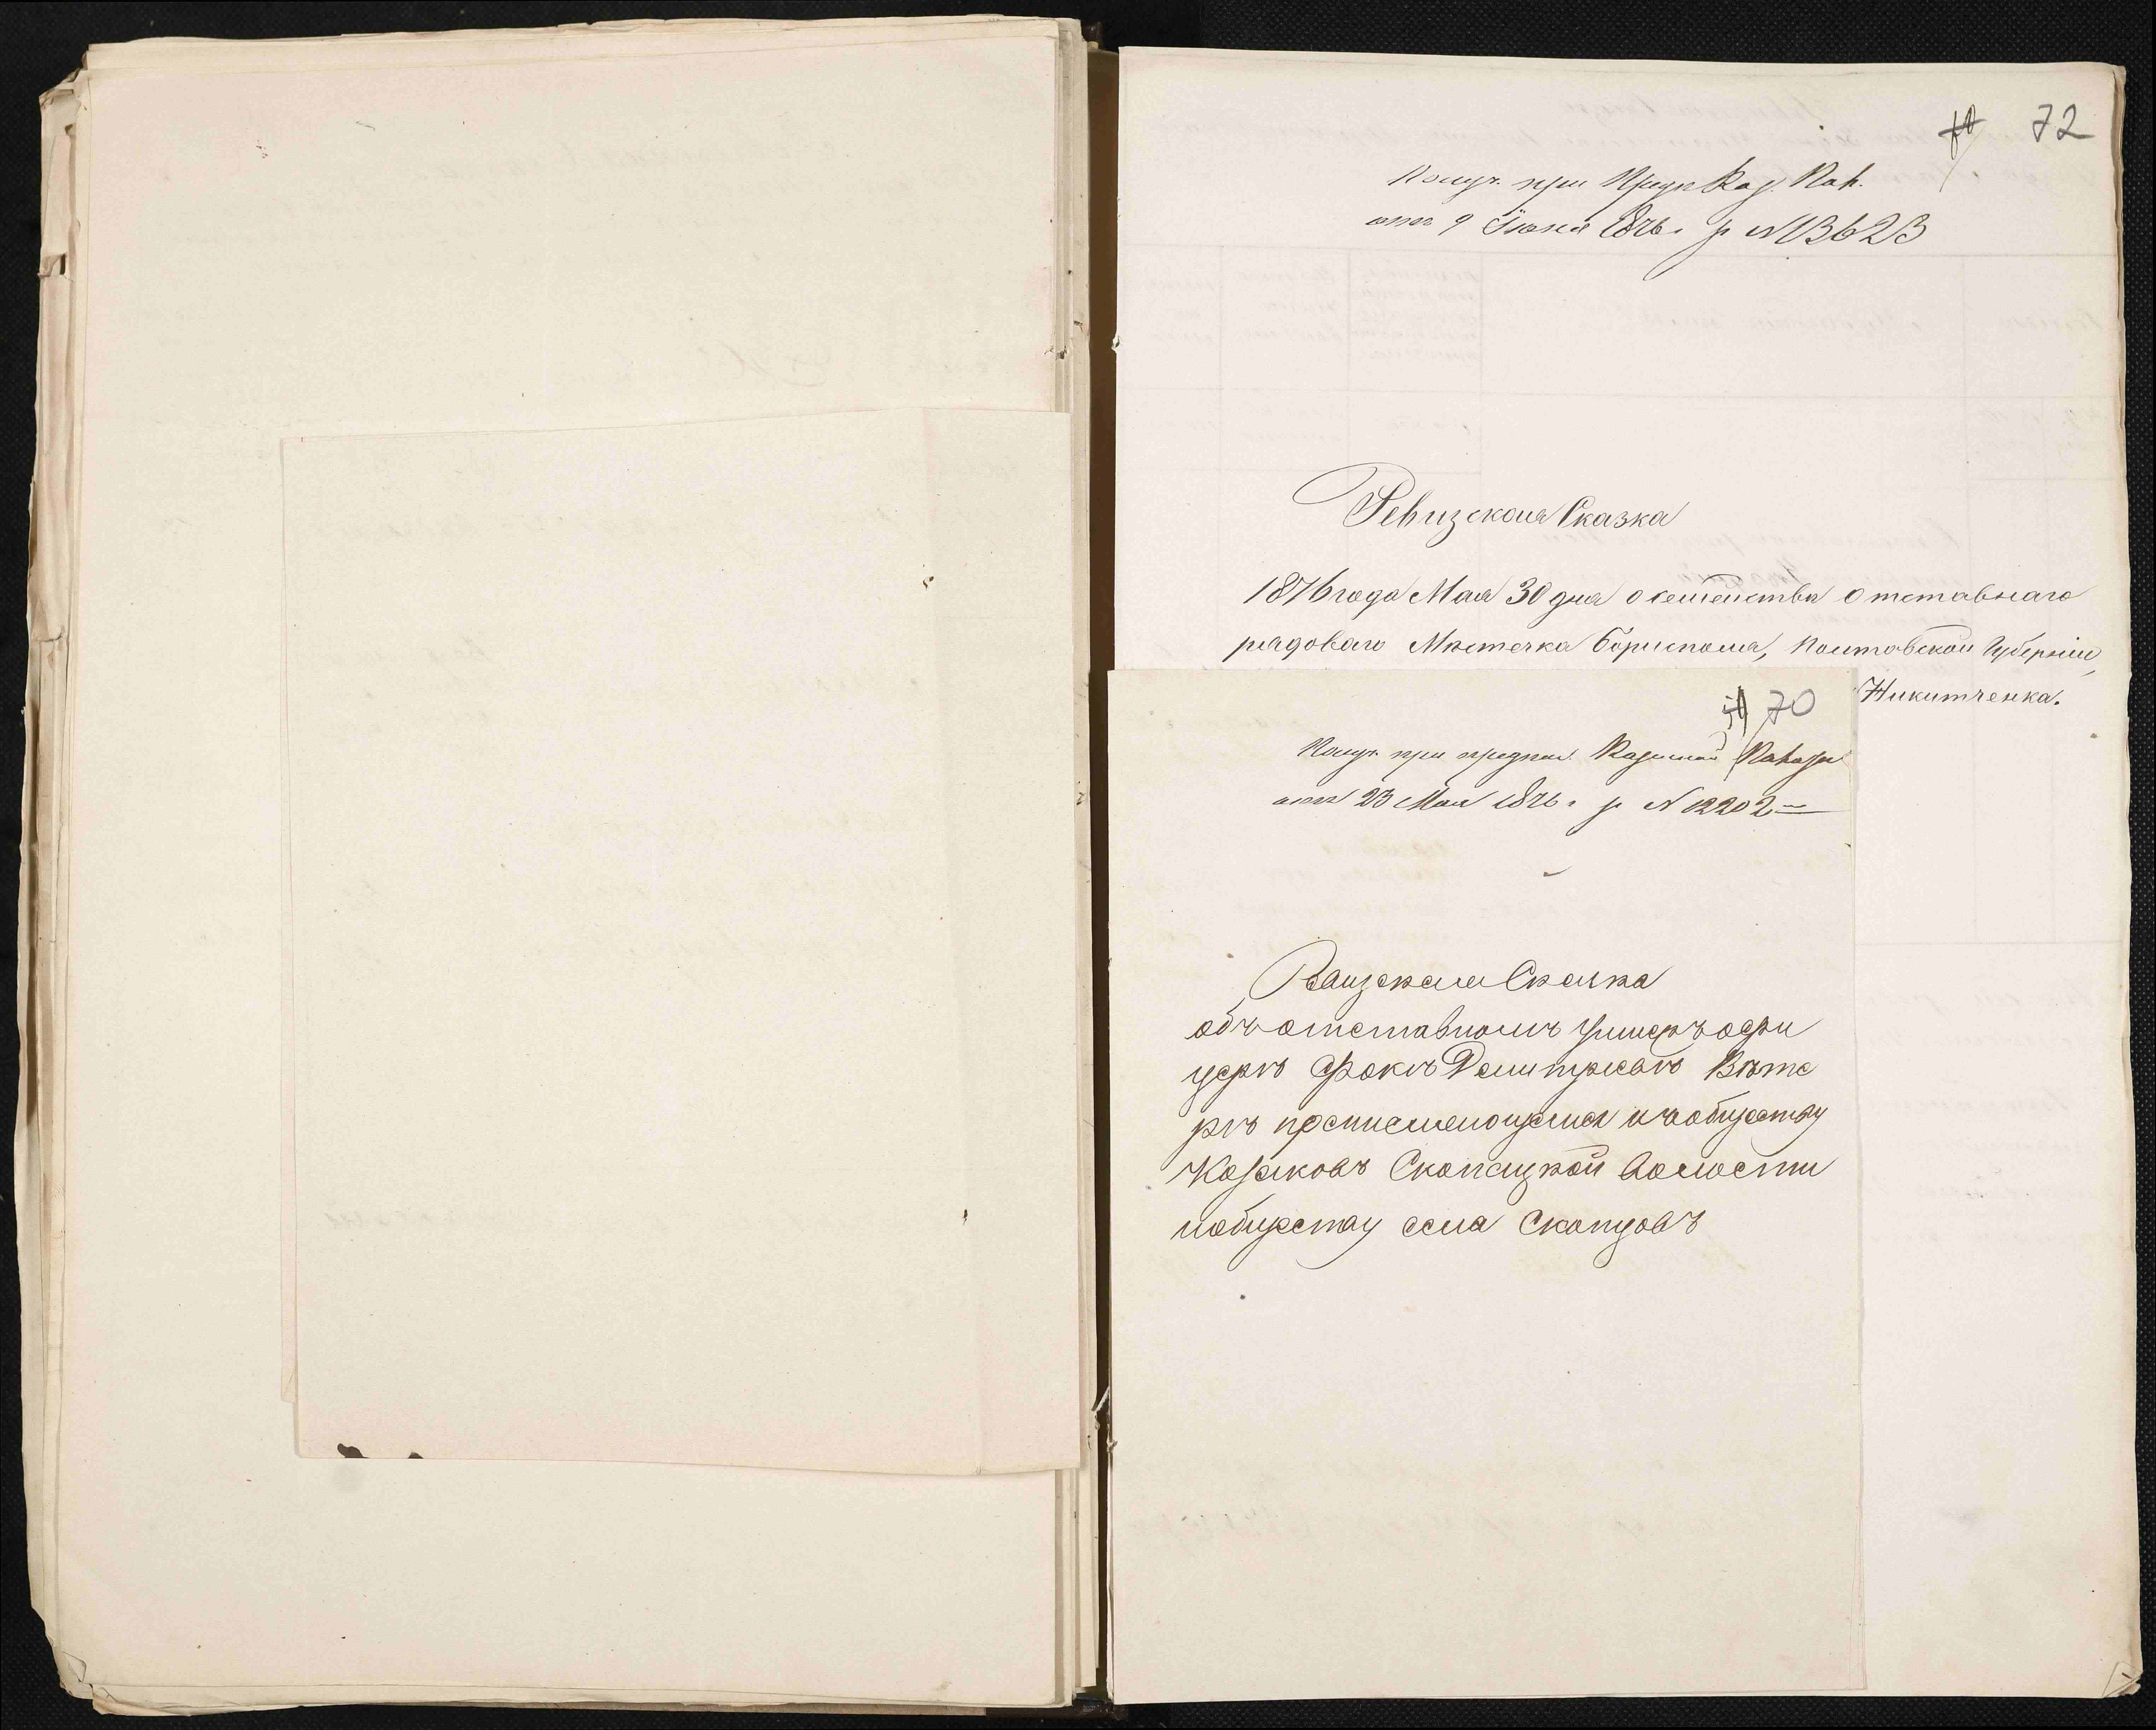 72
Получ. при Предп. Каз. Пал.
отъ 9 Іюня 1876 г. за № 13623
Ревизская Сказка
1876 года Мая 30 дня о семействѣ отставнаго
рядоваго Мѣстечка Борисполя, Полтавской Губерніи,
Никитченка.
70
Получ. при предпис. Казенной Палаты
отъ 23 Мая 1876 г. за № 12202
Ревизская Сказка
объ отставномъ Унтеръ офи
церѣ Фокѣ Дмитріевѣ Вѣте
рѣ
Козаковъ Скопецкой волости
села Скопцовъ